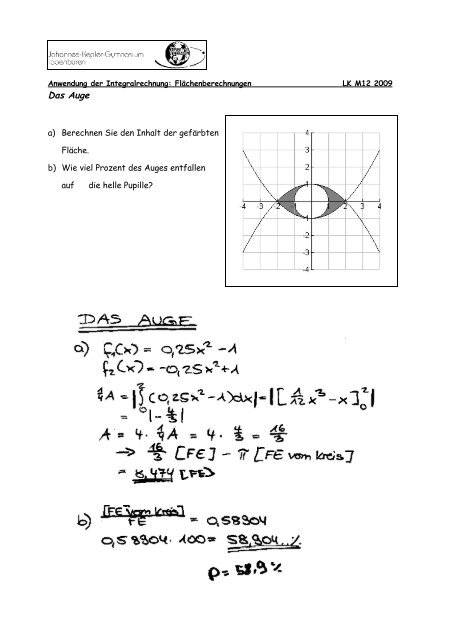 Johannes-Kepler-Gymnasium
Ibbenbüren
Anwendung der Integralrechnung: Flächenberechnungen LK M12 2009
Das Auge
a) Berechnen Sie den Inhalt der gefärbten
Fläche.
b) Wie viel Prozent des Auges entfallen
auf die helle Pupille?
4
3
2
1
-4 -3 -2 -1 1 2 3 4
-1
-2
-3
-4
DAS AUGE
a) f₁(x) = 0,25x² - 1
f₂(x) = -0,25x² + 1
¼A = |∫₀² (0,25x² - 1)dx| = |[1/12 x³ - x]₀²|
= |- 4/3|
A = 4 · ¼A = 4 · 4/3 = 16/3
→ 16/3 [FE] - π [FE vom Kreis]
[FE]
b) [FE vom Kreis] / FE = 0,58904
0,58904 · 100 = 58,904..%
p = 58,9 %